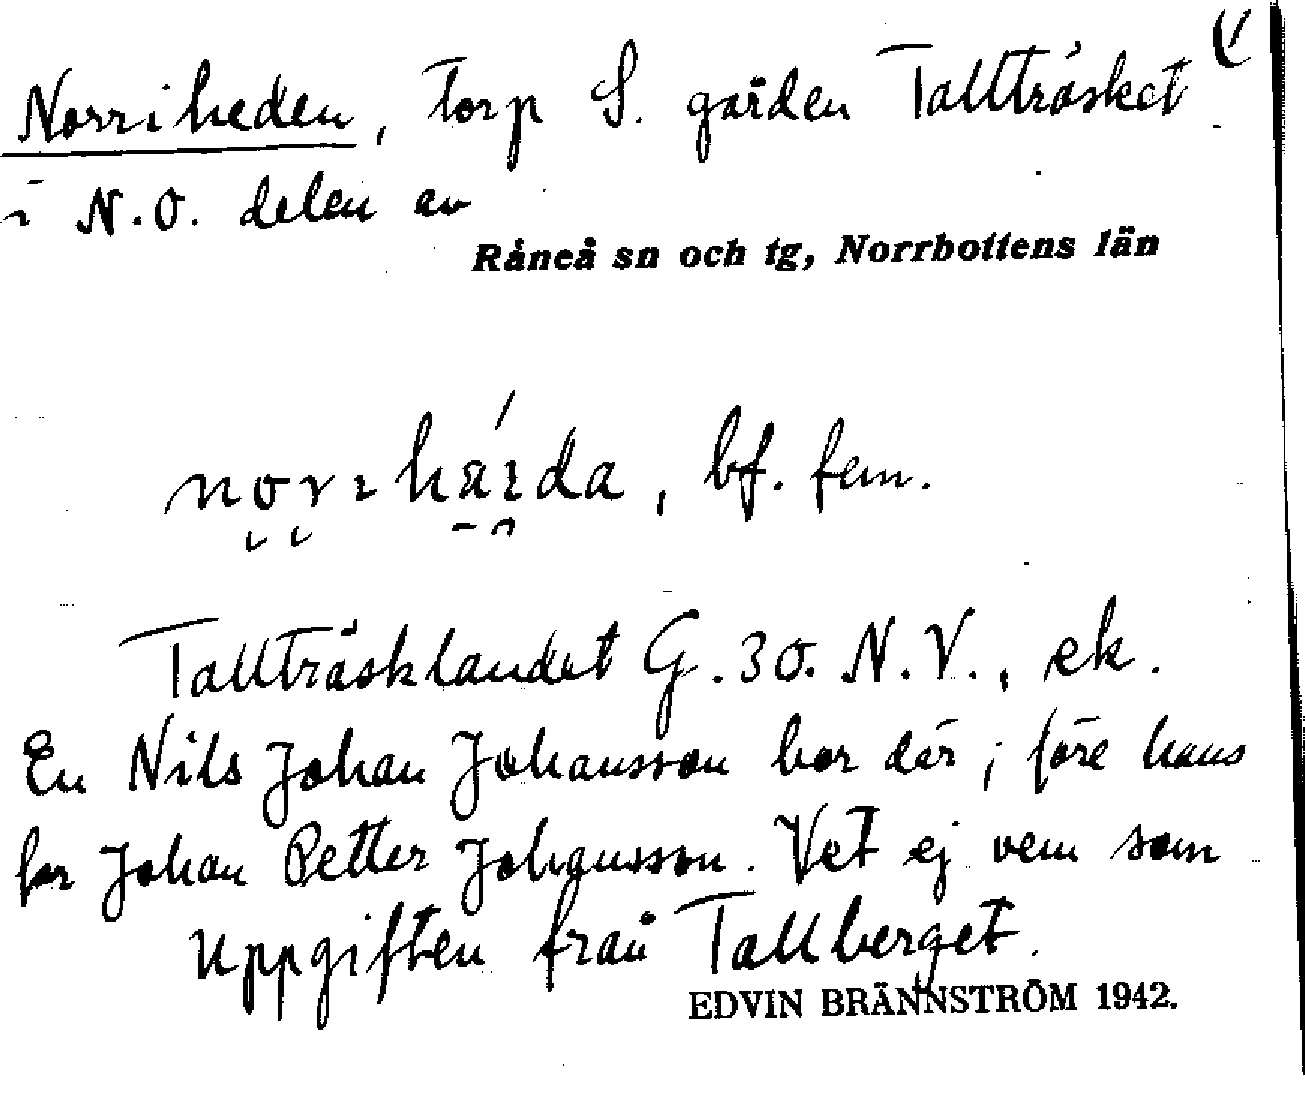 Norriheden, torp S. gården Tallträsket
i N.O. delen av
Råneå sn och tg, Norrbottens län
, bf. fem.
Tallträsklandet G. 30. N.V., ek.
En Nils Johan Johansson bor där; före hans
far Johan Petter Johansson. Vet ej vem som
Uppgiften från Tallberget.
EDVIN BRÄNNSTRÖM 1942.